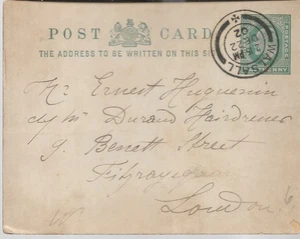 POST CARD
THE ADDRESS TO BE WRITTEN ON THIS SI
WALSALL
PM
02
Mr Ernest Huguenin
c/o Mr Durand Hairdresser
9 Benett Street
London